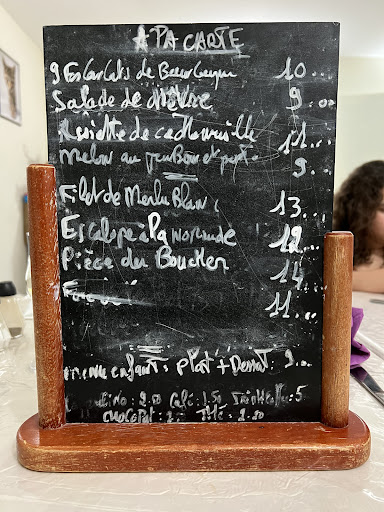 A PA CARTE
9 Escargots de Bourgogne 10...
Salade de chèvre 9...
de 11...
Melon au jambon et 9...
Filet de Merlu Blanc, 13...
Escalope à la normande 12...
Pièce du Boucher 14...
11...
menu enfant: plat + Dessert: 9...
2.00 Café: 1.50 5
Chocolat: Thé: 2.50